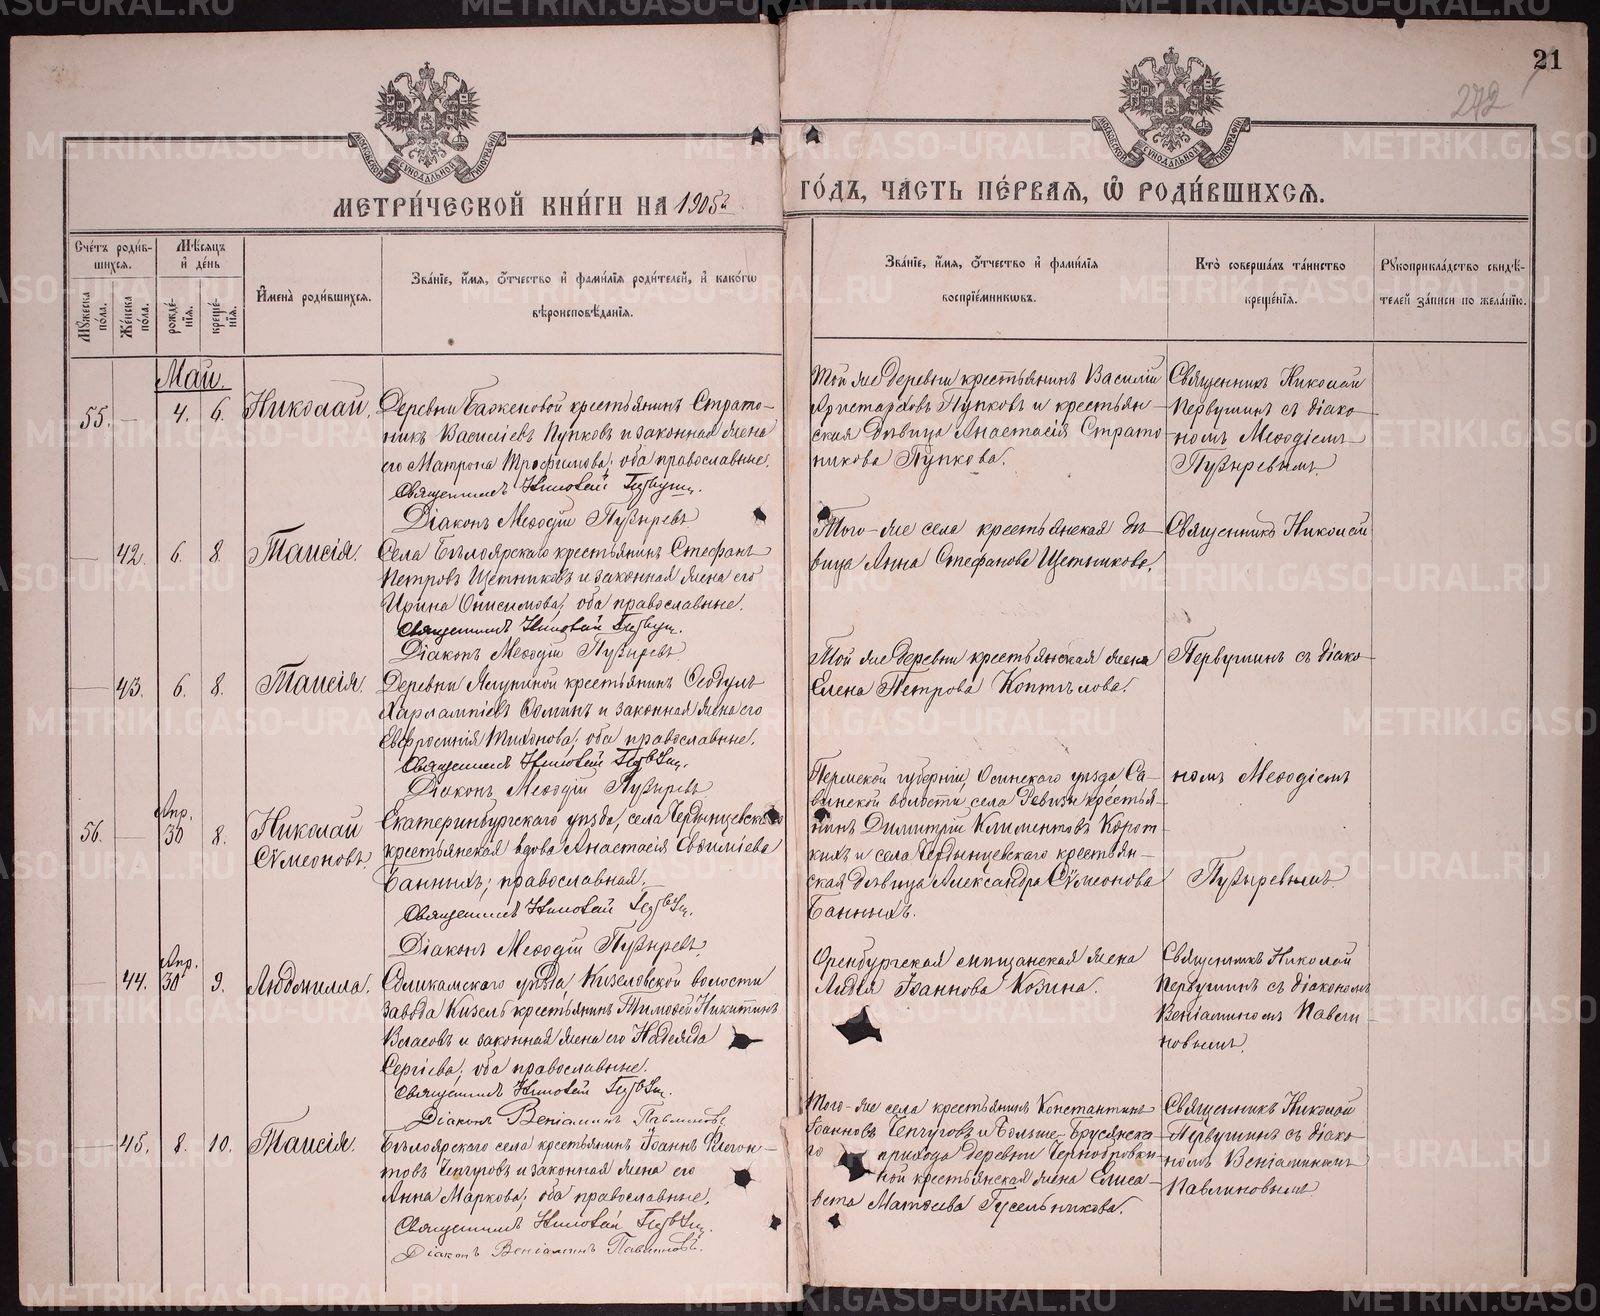 21
272
МЕТРИ́ЧЕСКОЙ КНИ́ГИ НА 1905й
ГО́ДЪ, ЧАСТЬ ПЕ́РВАЯ, Ѽ РОДИ́ВШИХСЯ.
Сче́тъ роди́в-
шихся.
Мꙋжеска по́ла.
Же́нска по́ла.
Мѣ́сяцъ
и҆ де́нь
рожде́-
нїя.
креще́-
нїя.
И҆мена̀ роди́вшихся.
Зва́нїе, и҆́мя, ѻ҆́тчество и҆ фами́лїя роди́телей, и҆ како́гѡ
вѣроисповѣ́данїя.
Зва́нїе, и҆́мя, ѻ҆́тчество и҆ фами́лїя
воспрїе́мниковъ.
Кто̀ соверша́лъ та́инство
креще́нїя.
Рꙋкоприкла́дство свидѣ́-
телей за́писи по жела́нїю.
Май.
55. — 4. 6. Николай.
Деревни Баженовой крестьянинъ Страто-
никъ Василіевъ Пупковъ и законная жена
его Матрона Трофимова; оба православные.
Священникъ Николай
Діаконъ Меѳодій Пузыревъ
Той же деревни крестьянинъ Василій
Аристарховъ Пупковъ и крестьян-
ская дѣвица Анастасія Страто-
никова Пупкова.
Священникъ Николай
Первушинъ съ діако-
номъ Меѳодіемъ
Пузыревымъ
— 42. 6. 8. Таисія.
Села Бѣлоярскаго крестьянинъ Стефанъ
Петровъ Щетниковъ и законная жена его
Ирина Онисимова; оба православные.
Священникъ Николай
Діаконъ Меѳодій Пузыревъ
Того-же села крестьянская дѣ-
вица Анна Стефанова Щетникова.
Священникъ Николай
— 43. 6. 8. Таисія.
Деревни Ялуниной крестьянинъ Ѳеодулъ
Харлампіевъ Ѳоминъ и законная жена его
Евфросинія Тихонова; оба православные.
Священникъ Николай
Діаконъ Меѳодій Пузыревъ
Той же деревни крестьянская жена
Елена Петрова Коптѣлова.
Первушинъ съ діако-
56. — Апр. 30 8. Николай
Сѵмеоновъ.
Екатеринбургскаго уѣзда, села Чердынцевскаго
крестьянская вдова Анастасія Евѳиміева
Банныхъ; православная.
Священникъ Николай
Діаконъ Меѳодій Пузыревъ
Пермской губерніи, Осинскаго уѣзда Са-
винской волости, села Ревизи крестья-
нинъ Димитрій Климентовъ Корот-
кихъ и села Чердынцевскаго крестьян-
ская дѣвица Александра Сѵмеонова
Банныхъ.
номъ Меѳодіемъ
Пузыревымъ
— 44. Апр. 30 9. Людмилла.
Соликамскаго уѣзда Кизеловской волости
завода Кизелъ крестьянинъ Тимоѳей Никитинъ
Власовъ и законная жена его Надежда
Сергіева; оба православные.
Священникъ Николай
Діаконъ Веніаминъ Павлиновъ
Оренбургская мѣщанская жена
Лидія Іоаннова Козина.
Священникъ Николай
Первушинъ съ діакономъ
Веніаминомъ Павли-
новымъ.
— 45. 8. 10. Таисія.
Бѣлоярскаго села крестьянинъ Іоаннъ Леон-
товъ Чепчуговъ и законная жена его
Анна Маркова; оба православные.
Священникъ Николай
Діаконъ Веніаминъ Павлиновъ.
Того-же села крестьянинъ Константинъ
Іоанновъ Чепчуговъ и Больше-Брусянска-
го прихода деревни Чернобровки-
ной крестьянская жена Елиса-
вета Матѳеева Гусельникова.
Священникъ Николай
Первушинъ съ діако-
номъ Веніаминомъ
Павлиновымъ
METRIKI.GASO-URAL.RU